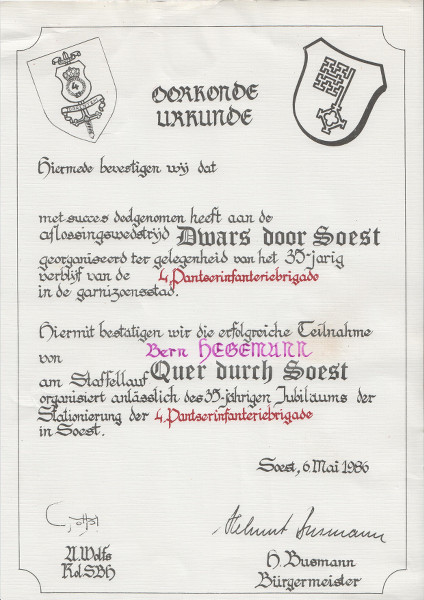 4
OORKONDE
URKUNDE
Hiermede bevestigen wij dat
met succes deelgenomen heeft aan de
aflossingswedstrijd Dwars door Soest
georganiseerd ter gelegenheid van het 35-jarig
verblijf van de 4.Pantserinfanteriebrigade
in de garnizoensstad.
Hiermit bestätigen wir die erfolgreiche Teilnahme
von Bern HEGEMANN
am Staffellauf Quer durch Soest
organisiert anlässlich des 35-jährigen Jubiläums der
Stationierung der 4.Pantserinfanteriebrigade
in Soest.
Soest, 6. Mai 1986
Helmut Busmann
A. Wolfs
Kol SBH
H. Busmann
Bürgermeister